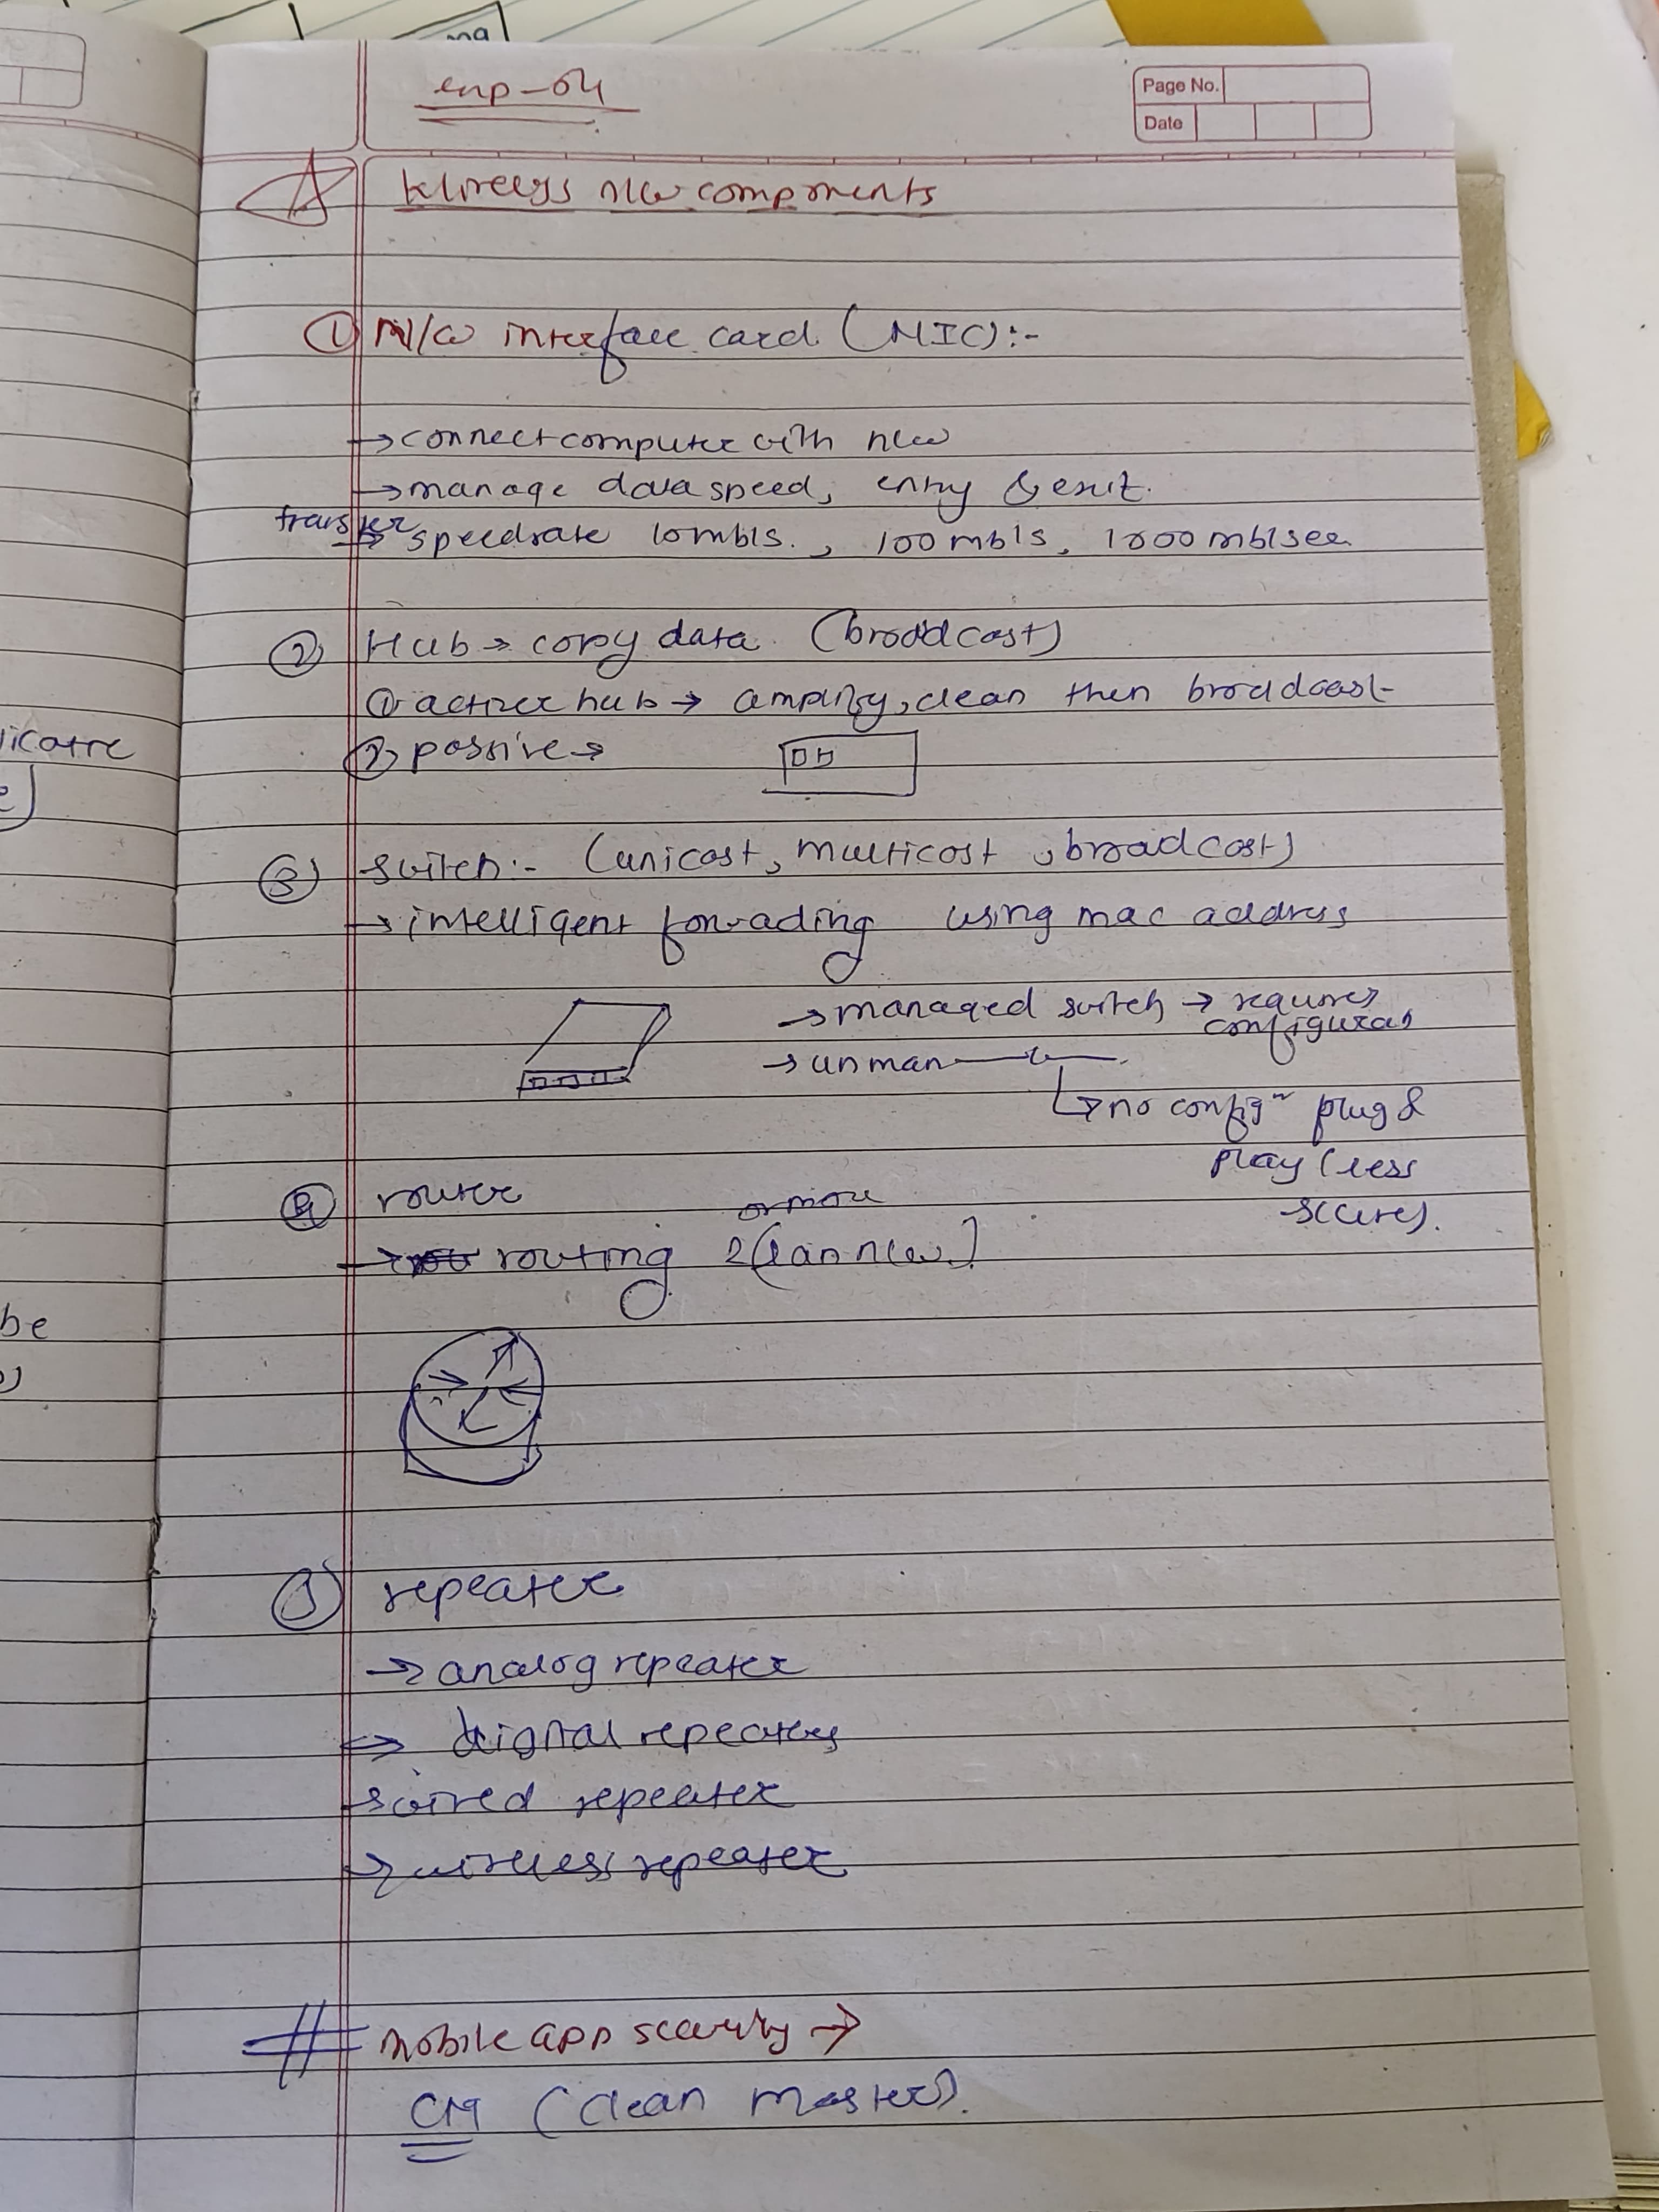 exp-04
Page No.
Date
wireless n/w components
① N/w interface card (NIC):-
→ connect computer with n/w
→ manage data speed, entry & exit.
transfer
→ speed rate 10mb/s., 100 mb/s, 1000 mb/sec
② Hub → copy data (broadcast)
① active hub → amplify, clean then broadcast
② passive →
③ switch:- (unicast, multicast, broadcast)
→ intelligent forwading using mac address
→ managed switch → requires
configuras
→ unman
↳ no config plug &
play (less
secure).
④ router
or more
→ routing 2 (lan n/w)
⑤ repeater
→ analog repeater
→ digital repeater
→ wired repeater
→ wireless repeater
# mobile app security →
CM (clean master).
be